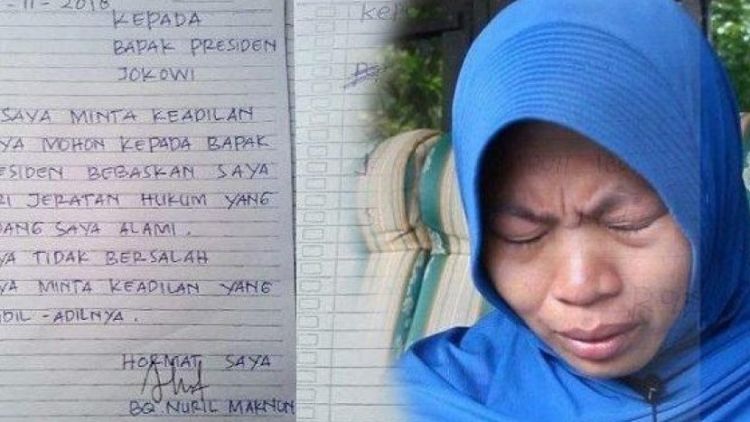 -11-2018
KEPADA
BAPAK PRESIDEN
JOKOWI
SAYA MINTA KEADILAN
YA MOHON KEPADA BAPAK
ESIDEN BEBASKAN SAYA
RI JERATAN HUKUM YANG
DANG SAYA ALAMI.
YA TIDAK BERSALAH
YA MINTA KEADILAN YANG
DIL-ADILNYA.
HORMAT SAYA
BQ NURIL MAKNUN